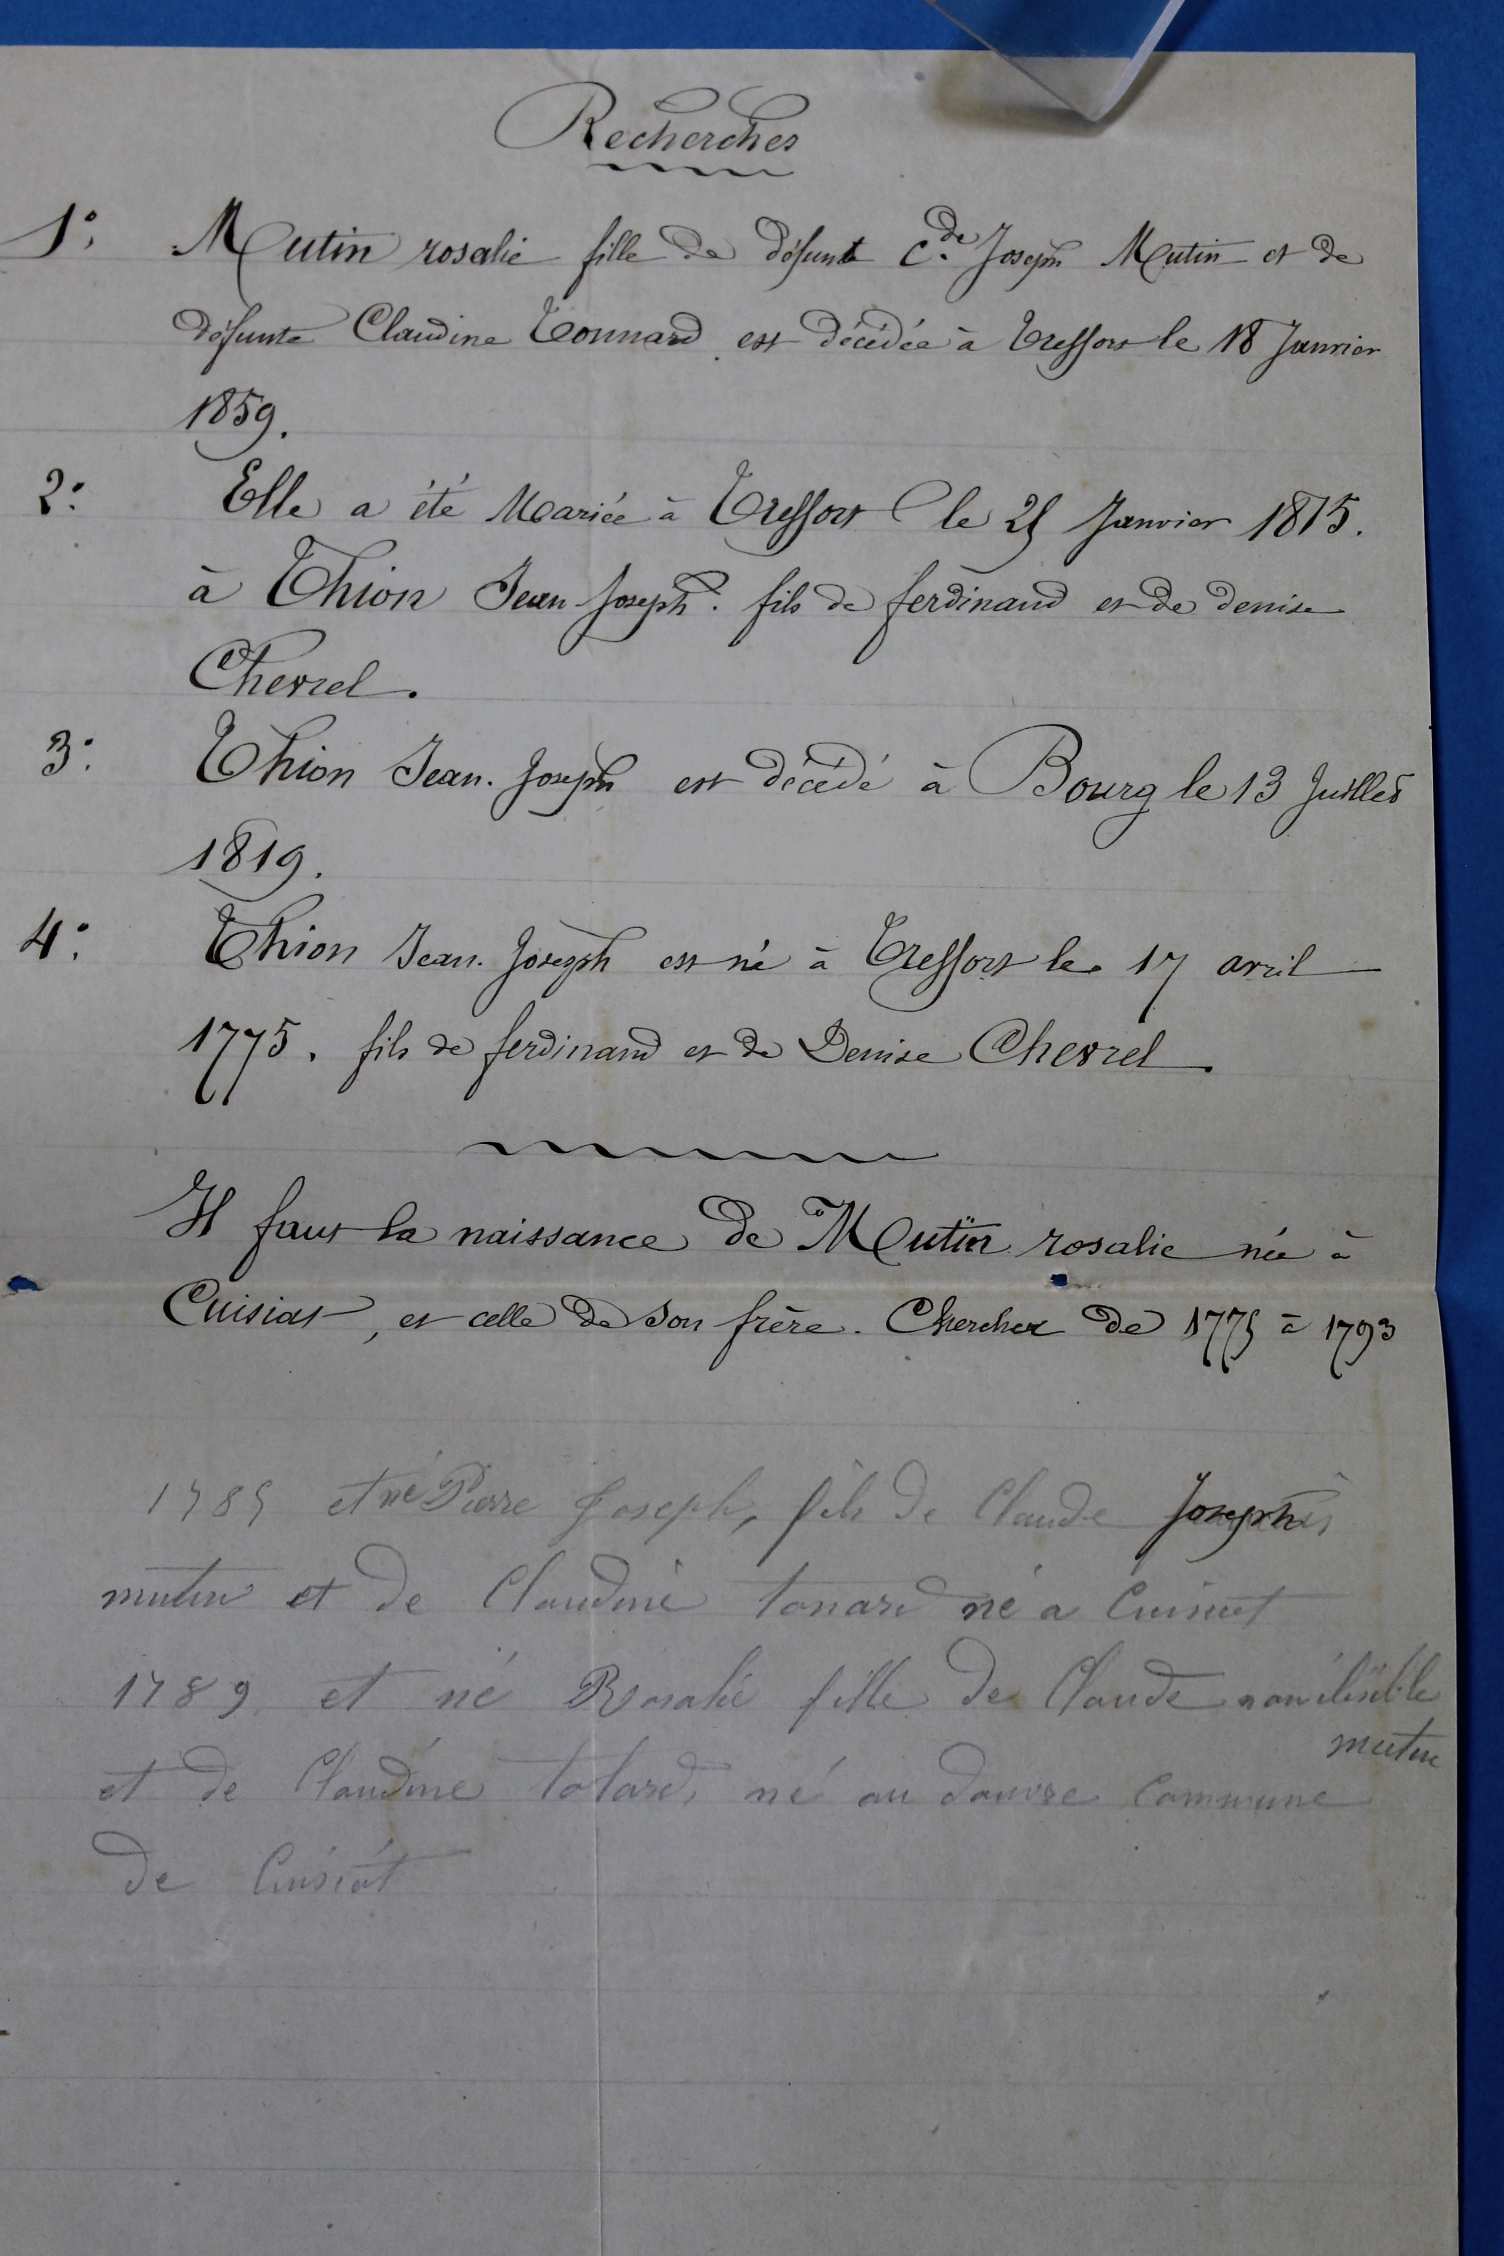 Recherches
1° Mutin rosalie fille de défunt C.de Joseph Mutin et de
défunte Claudine Tonnard est décédée à Treffort le 18 Janvier
1859.
2° Elle a été Mariée à Treffort le 25 Janvier 1815.
à Thion Jean-Joseph. fils de ferdinand et de denise
Chevrel.
3° Thion Jean-Joseph est décédé à Bourg le 13 Juillet
1819.
4° Thion Jean-Joseph est né à Treffort le 17 avril
1775. fils de ferdinand et de Denise Chevrel.
Il faut la naissance de Mutin rosalie née à
Cuisiat, et celle de son frère. Chercher de 1775 à 1793
1785 et né Pierre Joseph, fils de Claude Joseph
mutin et de Claudine tonard né a Cuisiat
1789 et né Rosalie fille de Claude nom ilisible
mutin
et de Claudine tolard, né au douvre commune
de Cuisiat